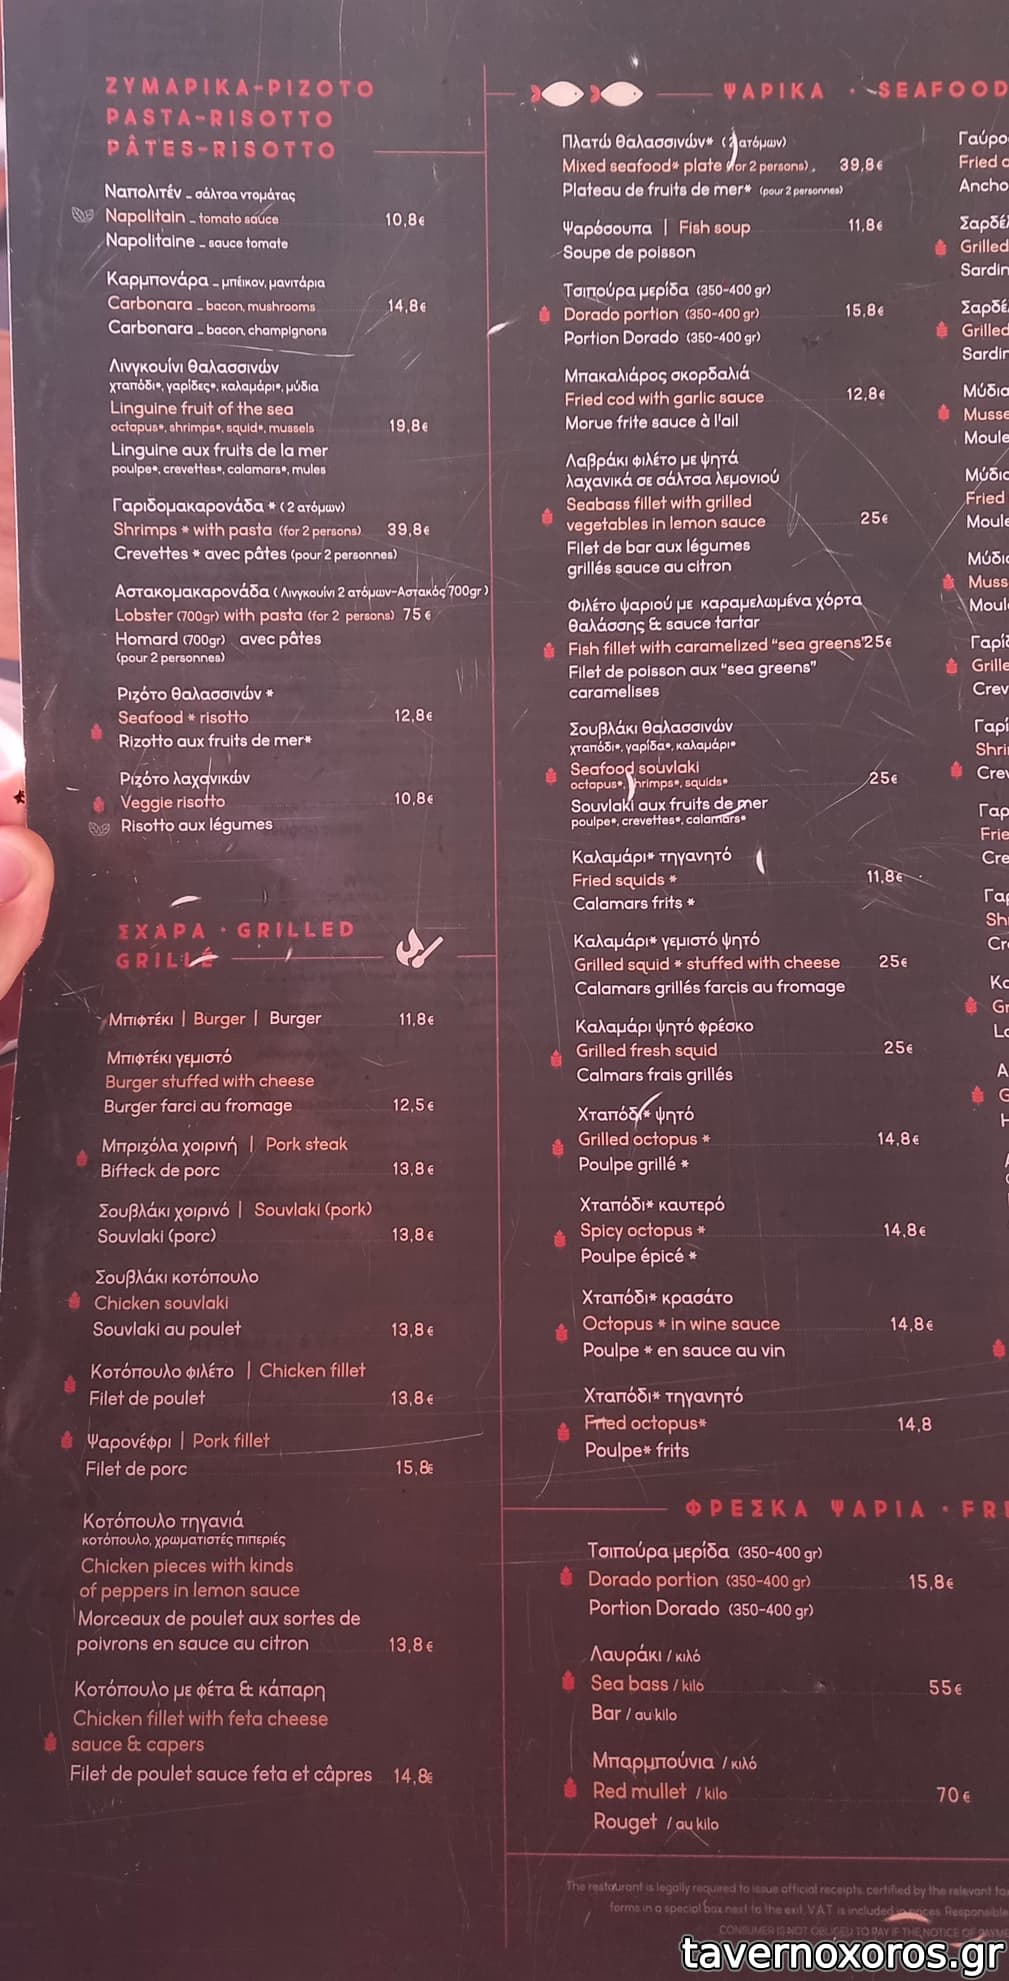 ΖΥΜΑΡΙΚΑ-ΡΙΖΟΤΟ
PASTA-RISOTTO
PÂTES-RISOTTO
Ναπολιτέν - σάλτσα ντομάτας
Napolitain - tomato sauce 10,8€
Napolitaine - sauce tomate
Καρμπονάρα - μπέικον, μανιτάρια
Carbonara - bacon, mushrooms 14,8€
Carbonara - bacon, champignons
Λινγκουίνι θαλασσινών
χταπόδι*, γαρίδες*, καλαμάρι*, μύδια
Linguine fruit of the sea
octapus*, shrimps*, squid*, mussels 19,8€
Linguine aux fruits de la mer
poulpe*, crevettes*, calamars*, mules
Γαριδομακαρονάδα * ( 2 ατόμων)
Shrimps * with pasta (for 2 persons) 39,8€
Crevettes * avec pâtes (pour 2 personnes)
Αστακομακαρονάδα ( Λινγκουίνι 2 ατόμων-Αστακός 700gr )
Lobster (700gr) with pasta (for 2 persons) 75 €
Homard (700gr) avec pâtes
(pour 2 personnes)
Ριζότο θαλασσινών *
Seafood * risotto 12,8€
Rizotto aux fruits de mer*
Ριζότο λαχανικών
Veggie risotto 10,8€
Risotto aux légumes
ΣΧΑΡΑ · GRILLED
GRILLÉ
Μπιφτέκι | Burger | Burger 11,8€
Μπιφτέκι γεμιστό
Burger stuffed with cheese
Burger farci au fromage 12,5€
Μπριζόλα χοιρινή | Pork steak
Bifteck de porc 13,8€
Σουβλάκι χοιρινό | Souvlaki (pork)
Souvlaki (porc) 13,8€
Σουβλάκι κοτόπουλο
Chicken souvlaki
Souvlaki au poulet 13,8€
Κοτόπουλο φιλέτο | Chicken fillet
Filet de poulet 13,8€
Ψαρονέφρι | Pork fillet
Filet de porc 15,8€
Κοτόπουλο τηγανιά
κοτόπουλο, χρωματιστές πιπεριές
Chicken pieces with kinds
of peppers in lemon sauce
Morceaux de poulet aux sortes de
poivrons en sauce au citron 13,8€
Κοτόπουλο με φέτα & κάπαρη
Chicken fillet with feta cheese
sauce & capers
Filet de poulet sauce feta et câpres 14,8€
ΨΑΡΙΚΑ · SEAFOOD
Πλατώ θαλασσινών* (2 ατόμων)
Mixed seafood* plate (for 2 persons) 39,8€
Plateau de fruits de mer* (pour 2 personnes)
Ψαρόσουπα | Fish soup 11,8€
Soupe de poisson
Τσιπούρα μερίδα (350-400 gr)
Dorado portion (350-400 gr) 15,8€
Portion Dorado (350-400 gr)
Μπακαλιάρος σκορδαλιά
Fried cod with garlic sauce 12,8€
Morue frite sauce à l'ail
Λαβράκι φιλέτο με ψητά
λαχανικά σε σάλτσα λεμονιού
Seabass fillet with grilled
vegetables in lemon sauce 25€
Filet de bar aux légumes
grillés sauce au citron
Φιλέτο ψαριού με καραμελωμένα χόρτα
θαλάσσης & sauce tartar
Fish fillet with caramelized "sea greens" 25€
Filet de poisson aux "sea greens"
caramelises
Σουβλάκι θαλασσινών
χταπόδι*, γαρίδα*, καλαμάρι*
Seafood souvlaki
octapus*, shrimps*, squids* 25€
Souvlaki aux fruits de mer
poulpe*, crevettes*, calamars*
Καλαμάρι* τηγανητό
Fried squids * 11,8€
Calamars frits *
Καλαμάρι* γεμιστό ψητό
Grilled squid * stuffed with cheese 25€
Calamars grillés farcis au fromage
Καλαμάρι ψητό φρέσκο
Grilled fresh squid 25€
Calmars frais grillés
Χταπόδι* ψητό
Grilled octopus * 14,8€
Poulpe grillé *
Χταπόδι* καυτερό
Spicy octopus * 14,8€
Poulpe épicé *
Χταπόδι* κρασάτο
Octopus * in wine sauce 14,8€
Poulpe * en sauce au vin
Χταπόδι* τηγανητό
Fried octopus* 14,8
Poulpe* frits
ΦΡΕΣΚΑ ΨΑΡΙΑ · FRE
Τσιπούρα μερίδα (350-400 gr)
Dorado portion (350-400 gr) 15,8€
Portion Dorado (350-400 gr)
Λαυράκι / κιλό
Sea bass / kilo 55€
Bar / au kilo
Μπαρμπούνια / κιλό
Red mullet / kilo 70€
Rouget / au kilo
The restaurant is legally required to issue official receipts, certified by the relevant ta
forms in a special box next to the exit. V.A.T. is included in prices. Responsible
CONSUMER IS NOT OBLIGED TO PAY IF THE NOTICE OF PAYME
Γαύρο
Fried a
Ancho
Σαρδέ
Grilled
Sardin
Σαρδέ
Grilled
Sardin
Μύδια
Musse
Moule
Μύδια
Fried
Moule
Μύδια
Muss
Moul
Γαρίδ
Grille
Crev
Γαρί
Shri
Crev
Γαρ
Frie
Cre
Γαρ
Sh
Cr
Κα
Gr
Lo
Α
G
H
tavernoxoros.gr